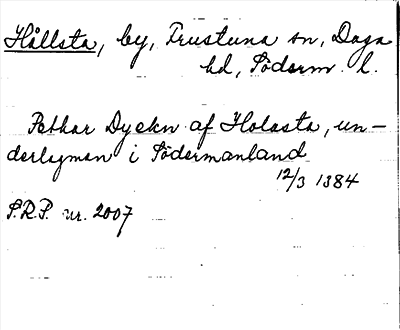 Hållsta, by, Frustuna sn, Daga
hd, Söderm. l.
Pethar Dyekn af Holasta, un-
derlagman i Södermanland
12/3 1384
S.R.P. nr. 2007